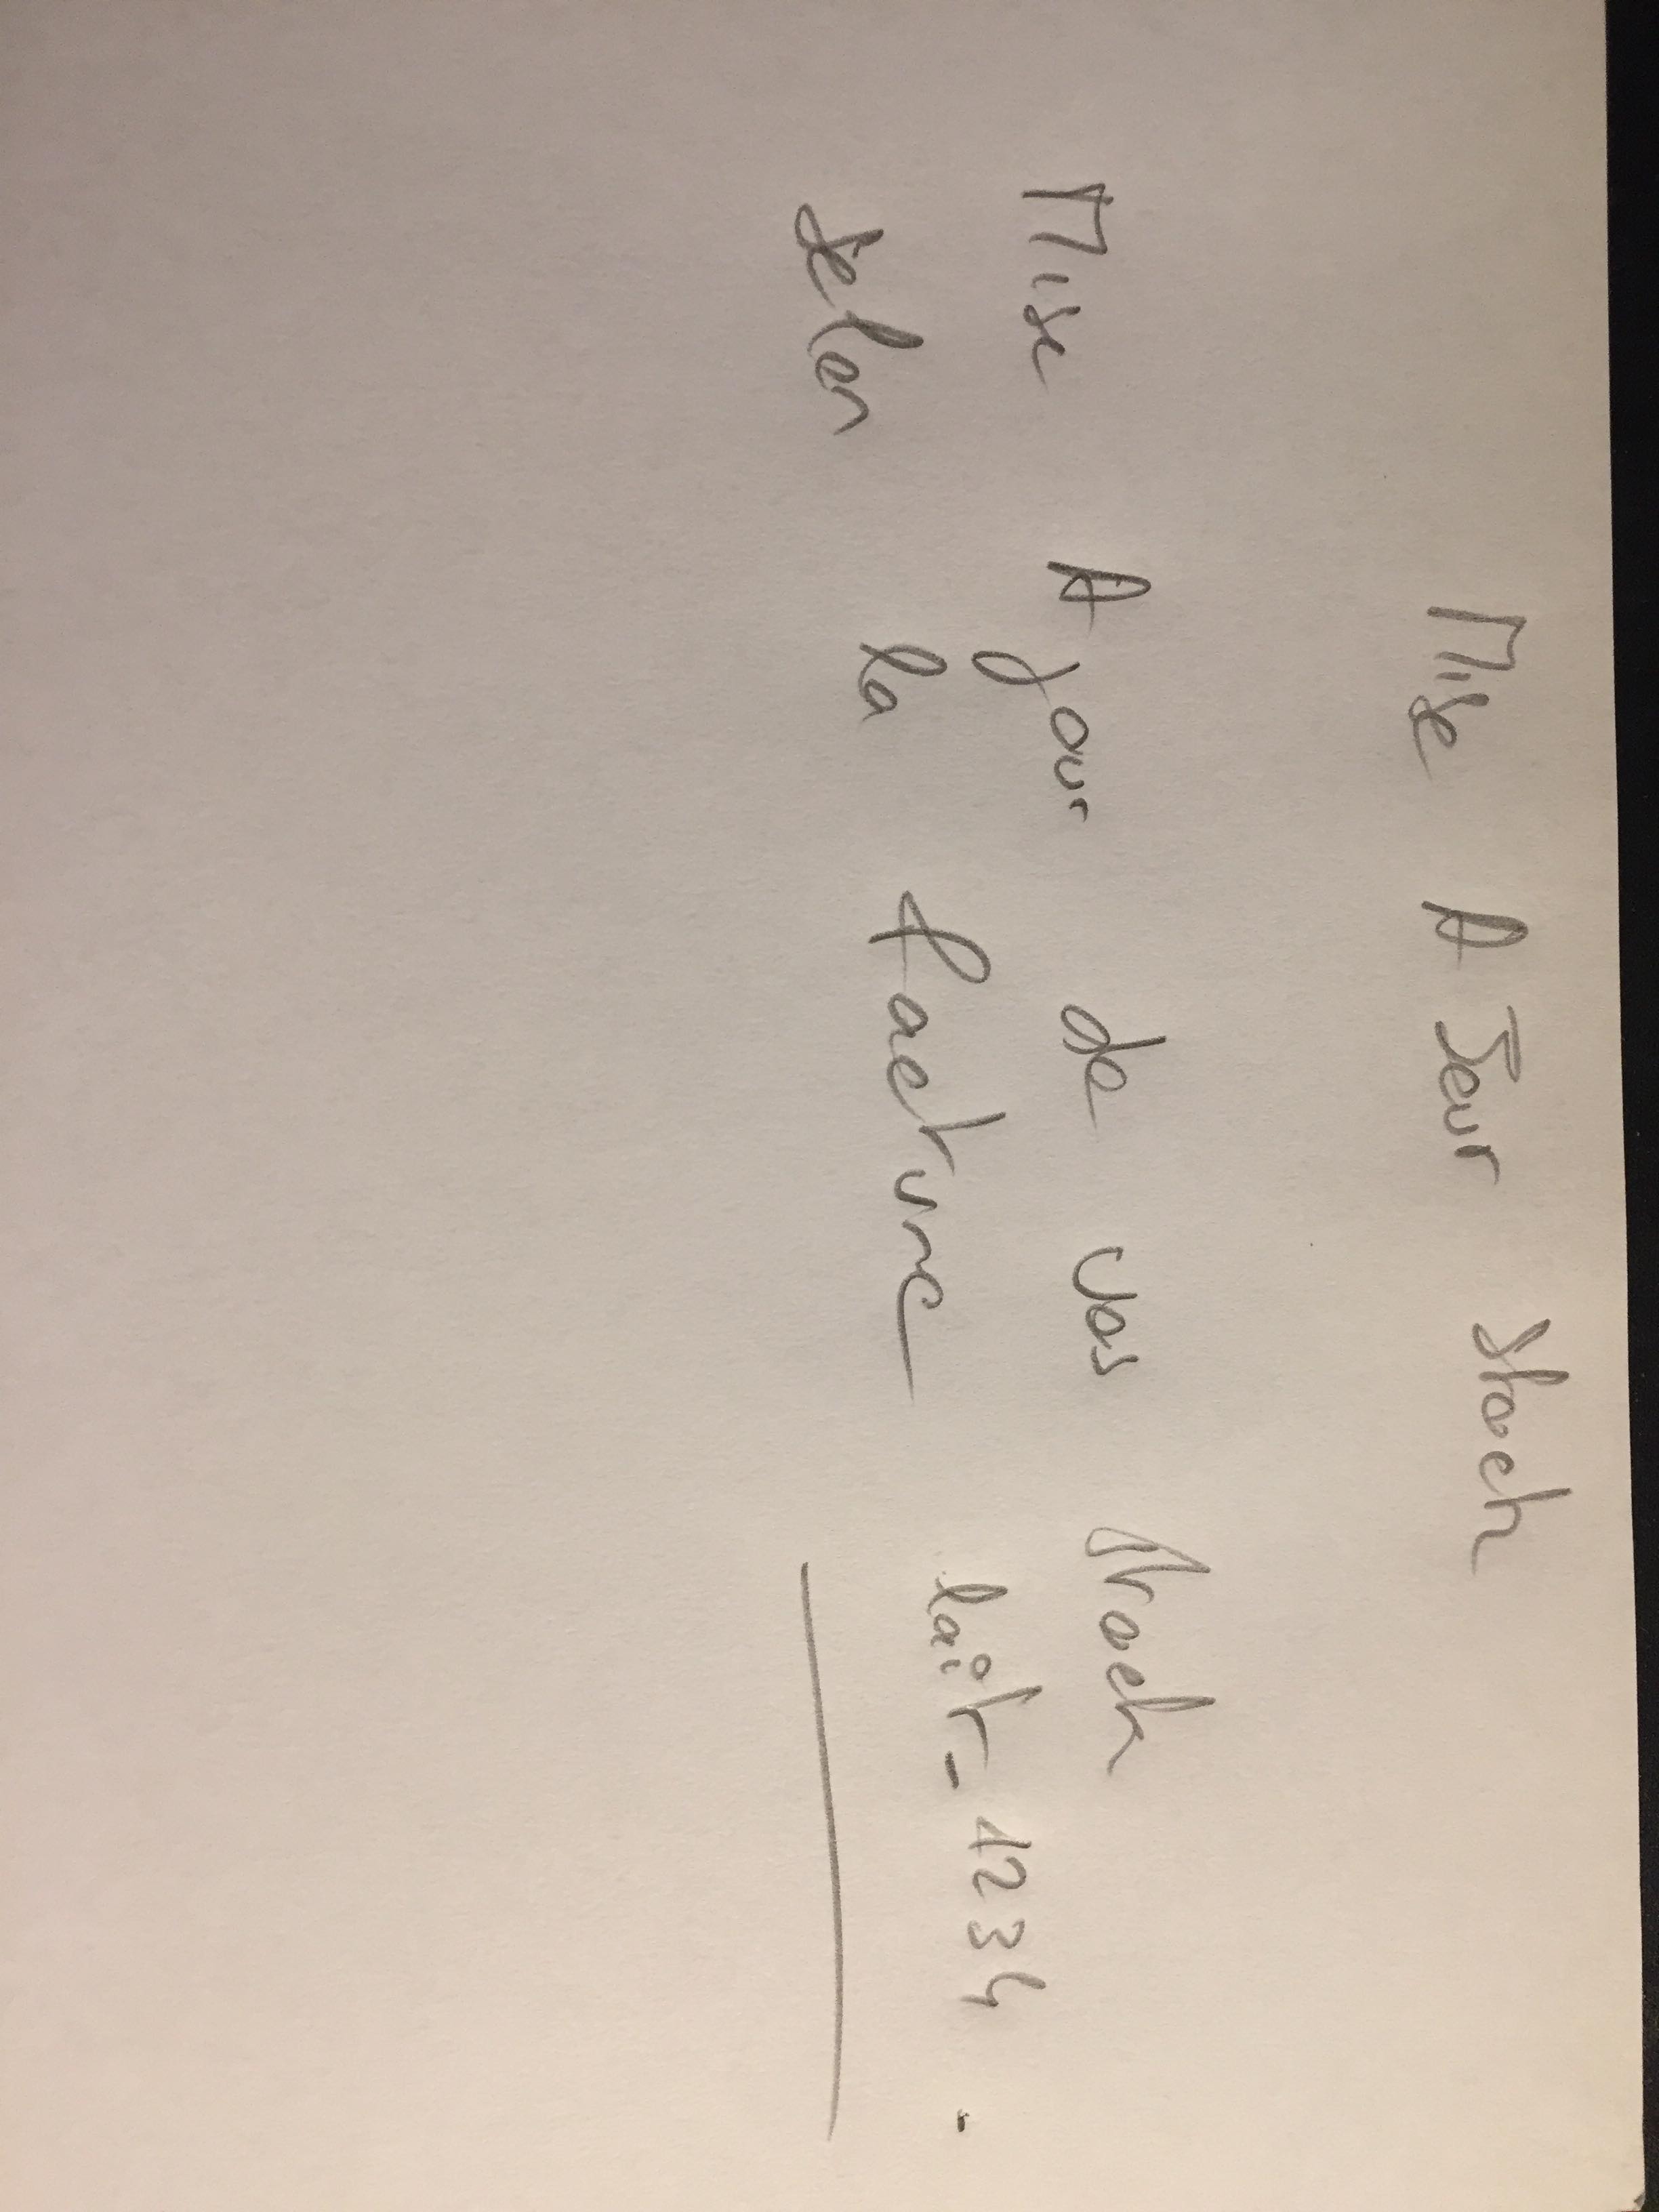 Mise A Jour stock
Mise A jour de vos stock
selon la facture lait-1234.